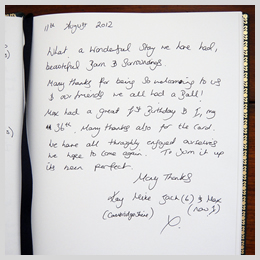 11th August 2012
What a Wonderful Stay we have had,
beautiful Barn & Surroundings
Many thanks for being so welcoming to us
& our friends we all had a Ball!
Max had a great 1st Birthday & I, my
36th. Many thanks also for the Card.
We have all throughly enjoyed ourselves
we hope to come again. To sum it up
its been perfect.
Many Thanks
Kay Mike Jack (6) & Max
(Cambridgeshire) (now 1)
X